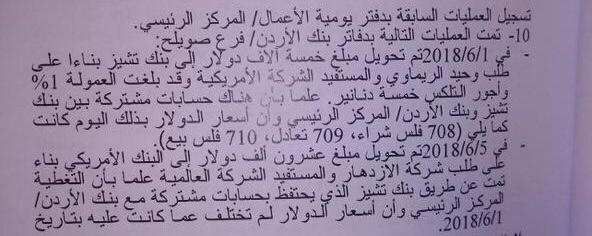 تسجيل العمليات السابقة بدفتر يومية الأعمال/ المركز الرئيسي.
10- تمت العمليات التالية بدفاتر بنك الأردن/ فرع صويلح:
- في 2018/6/1تم تحويل مبلغ خمسة آلاف دولار إلى بنك تشيز بناءا على
طلب وحيد الريماوي والمستفيد الشركة الأمريكية وقد بلغت العمولة 1%
وأجور التلكس خمسة دنانير. علما بأن هناك حسابات مشتركة بين بنك
تشيز وبنك الأردن/ المركز الرئيسي وأن أسعار الدولار بذلك اليوم كانت
كما يلي (708 فلس شراء، 709 تعادل، 710 فلس بيع).
- في 2018/6/5تم تحويل مبلغ عشرون ألف دولار إلى البنك الأمريكي بناء
على طلب شركة الازدهار والمستفيد الشركة العالمية علما بأن التغطية
تمت عن طريق بنك تشيز الذي يحتفظ بحسابات مشتركة مع بنك الأردن/
المركز الرئيسي وأن أسعار الدولار لم تختلف عما كانت عليه بتاريخ
2018/6/1.